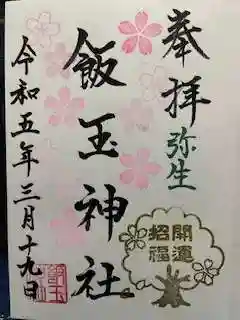 奉拝
弥生
開運
招福
飯玉神社
令和五年三月十九日